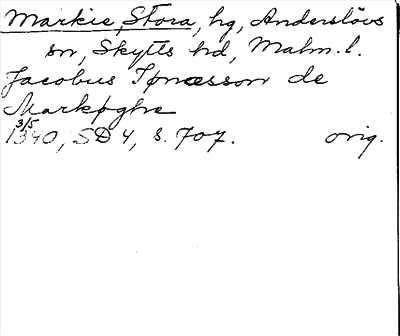 Markie, Stora, hg, Anderslövs
sn, Skytts hd, Malm. l.
Jacobus Tønæsson de
Markøghæ
3/5
1340, SD 4, s. 707. orig.